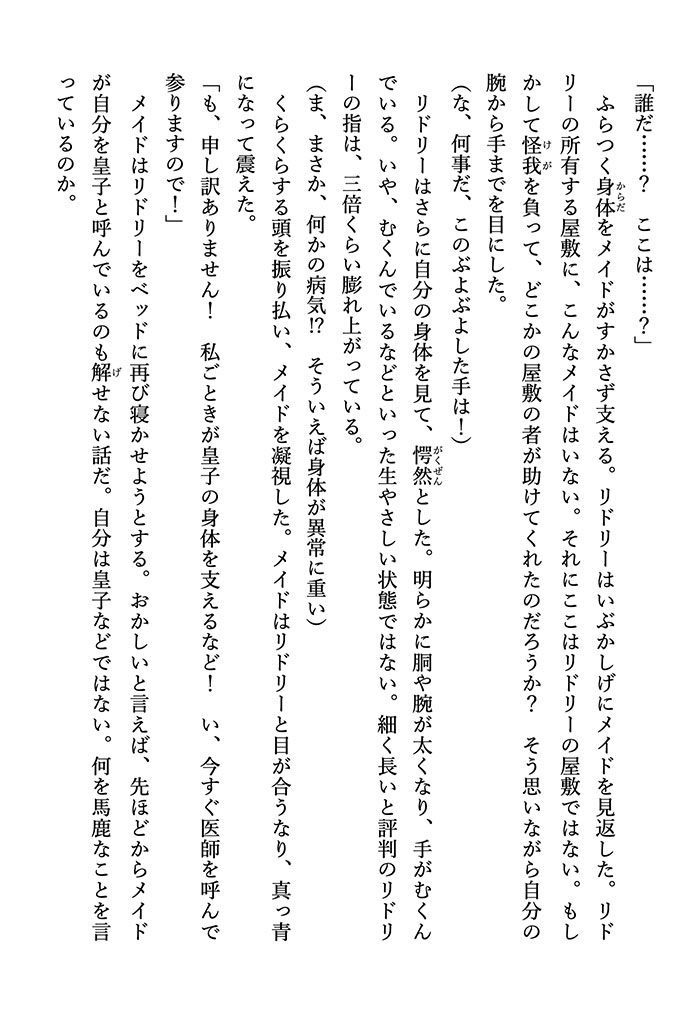 「誰だ……？　ここは……？」
　ふらつく身体をメイドがすかさず支える。リドリーはいぶかしげにメイドを見返した。リド
リーの所有する屋敷に、こんなメイドはいない。それにここはリドリーの屋敷ではない。もし
かして怪我を負って、どこかの屋敷の者が助けてくれたのだろうか？　そう思いながら自分の
腕から手までを目にした。
（な、何事だ、このぶよぶよした手は！）
　リドリーはさらに自分の身体を見て、愕然とした。明らかに胴や腕が太くなり、手がむくん
でいる。いや、むくんでいるなどといった生やさしい状態ではない。細く長いと評判のリドリ
ーの指は、三倍くらい膨れ上がっている。
（ま、まさか、何かの病気!?　そういえば身体が異常に重い）
　くらくらする頭を振り払い、メイドを凝視した。メイドはリドリーと目が合うなり、真っ青
になって震えた。
「も、申し訳ありません！　私ごときが皇子の身体を支えるなど！　い、今すぐ医師を呼んで
参りますので！」
　メイドはリドリーをベッドに再び寝かせようとする。おかしいと言えば、先ほどからメイド
が自分を皇子と呼んでいるのも解せない話だ。自分は皇子などではない。何を馬鹿なことを言
っているのか。
からだ
けが
がくぜん
げ